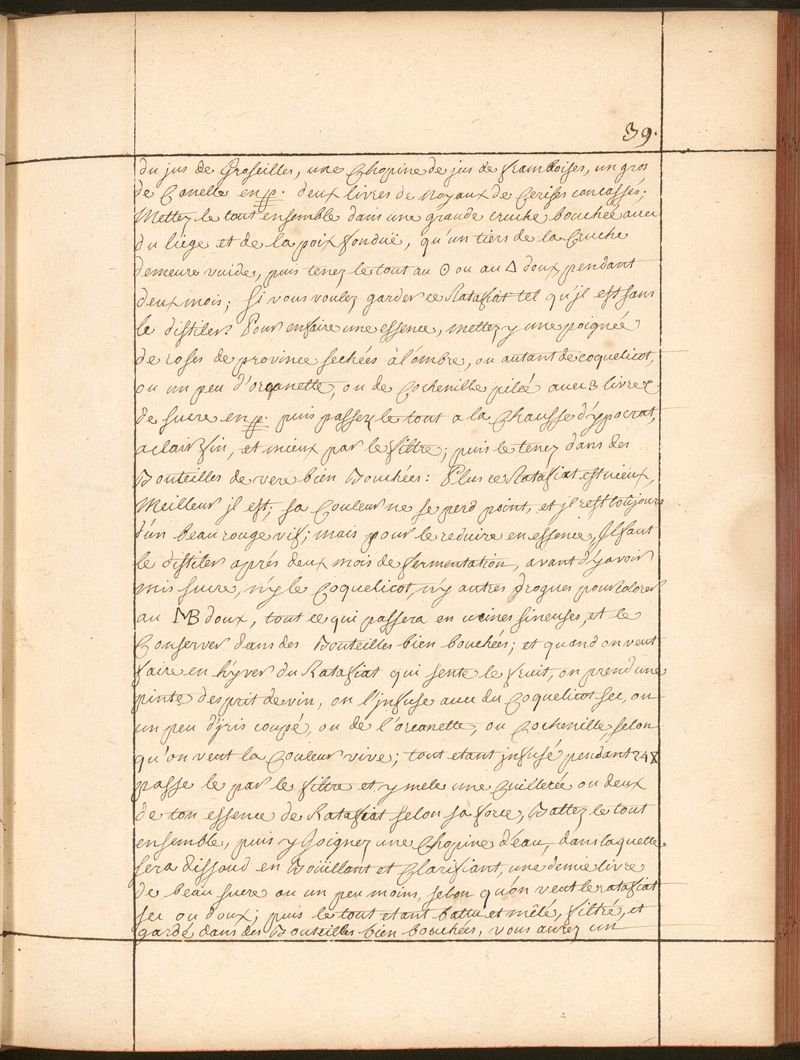 39.
du jus de Groseilles, une Chopine de jus de framboises, un gros
de Canelle en p. deux livres de noyaux de Cerises concassés;
Mettez le tout ensemble dans une grande cruche bouchée avec
du liège et de la poix fonduë, qu'un tiers de la Cruche
demeure vuide, puis tenez le tout au ☉ ou au △ doux pendant
deux mois; si vous voulez garder ce Ratafiat tel qu'jl est sans
le distiler. Pour en faire une essence, mettez y une poignée
de roses de province sechées à l'ombre, ou autant de coquelicot,
ou un peu d'orcanette, ou de Cochenille pilée avec 3 livres
de sucre en p. puis passez le tout a la Chausse d'ypocrat,
a clair fin, et mieux par le filtre; puis le tenez dans des
Bouteilles de vere bien Bouchées: Plus ce Ratafiat est vieux,
Meilleur jl est; sa Couleur ne se perd point, et jl est toujours
d'un beau rouge vif; mais pour le reduire en essence, Jl faut
le distiler aprés deux mois de fermentation, avant d'y avoir
mis sucre, n'y le Coquelicot, n'y autres drogues pour colorer
au MB doux, tout ce qui passera en veines sineuses, et le
Conserver dans des Bouteilles bien bouchées; et quand on veut
faire en hÿver du Ratafiat qui sente le fruit, on prend une
pinte d'esprit de vin, on l'jnfuse avec du Coquelicot sec, ou
un peu d'jris coupé, ou de l'orcanette, ou Cochenille, selon
qu'on veut la Couleur vive; tout etant jnfusé pendant 24
passe le par le filtre et y mele une Cuilletée ou deux
de ton essence de Ratafiat selon sa force, Battez le tout
ensemble, puis y Joignez une Chopine d'eau, dans laquelle
sera dissoud en Boüillant et Clarifiant, une demie livre
de beau sucre ou un peu moins, selon qu'on veut le ratafiat
sec ou doux; puis le tout etant battu et mêlé, filtré, et
gardé dans des Bouteilles bien bouchées, vous aurez un